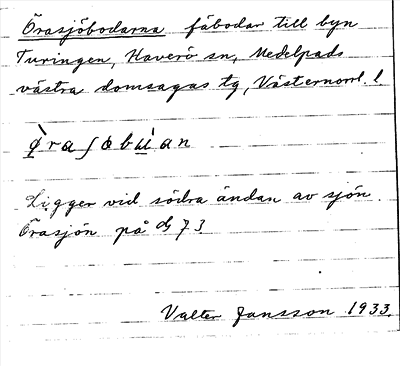 Örasjöbodarna fäbodar till byn
Turingen, Haverö sn, Medelpads
västra domsagas tg, Västernorrl. l.
ø̀raʃøbù̲an
Ligger vid södra ändan av sjön
Örasjön på
Valter Jansson 1933.